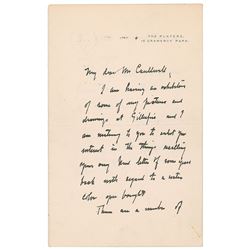 THE PLAYERS,
16 GRAMERCY PARK.
My dear Mr Caldwell,
I am having an exhibition
of some of my pictures and
drawings, at Gillespie and I
am writing to you to enlist your
interest in the things recalling
your very kind letter of some years
back with regard to a water
color you bought.
There are a number of